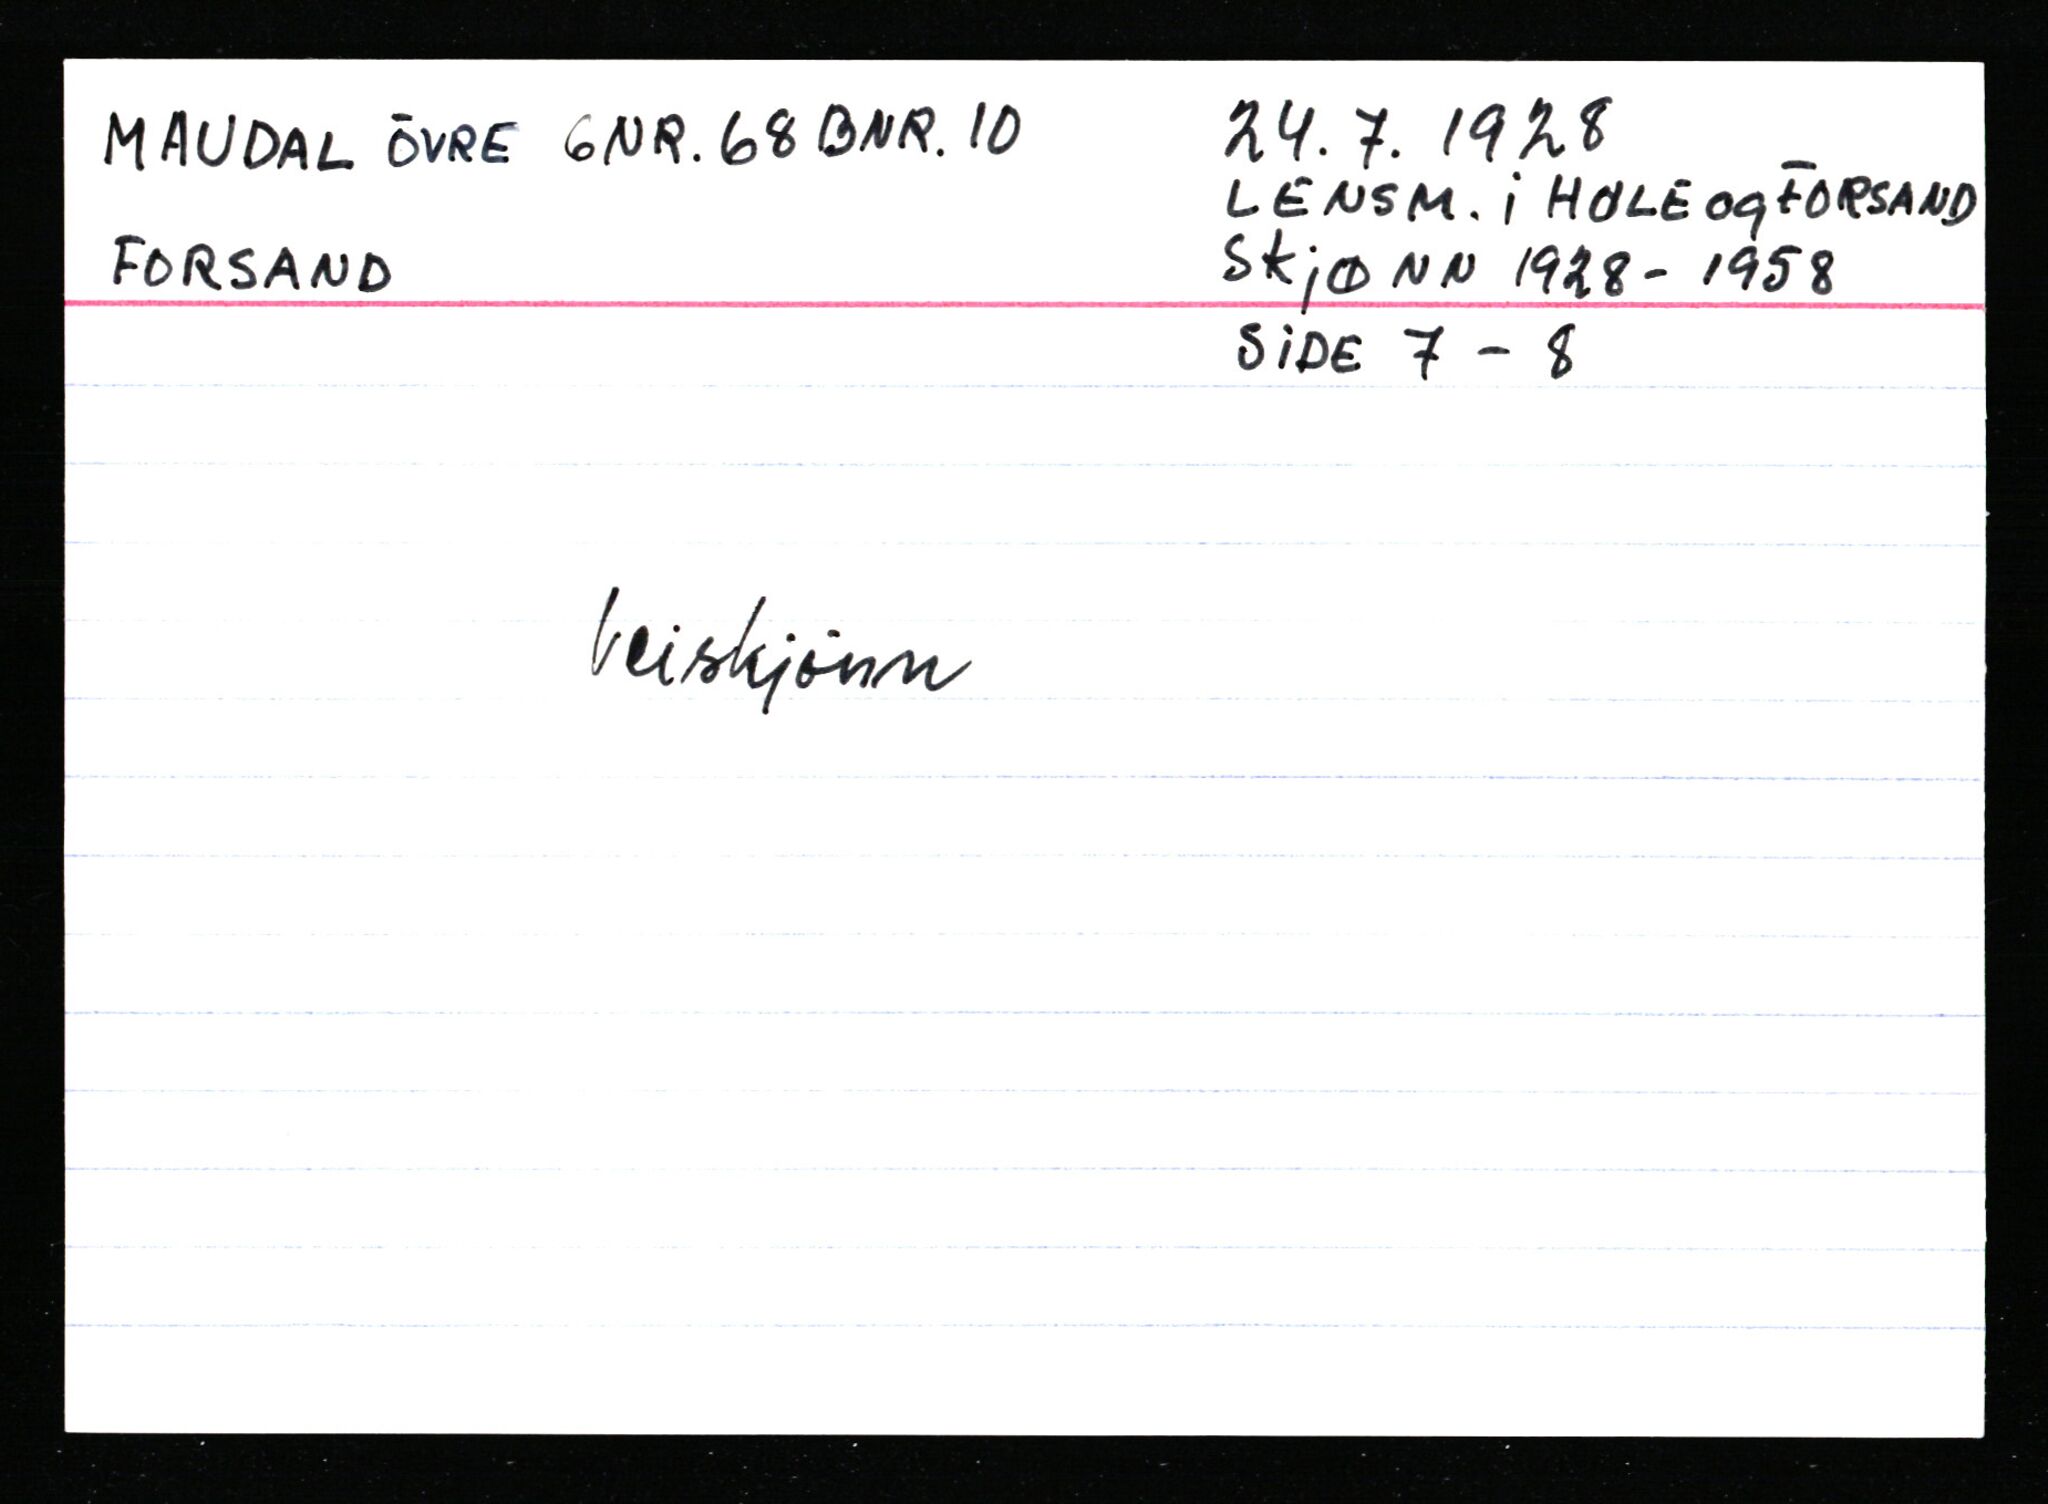 MAUDAL ÖVRE GNR. 68 BNR. 10
FORSAND
24. 7. 1928
LENSM. i HØLE og FORSAND
SkjØNN 1928 - 1958
SiDE 7 - 8
Veiskjönn